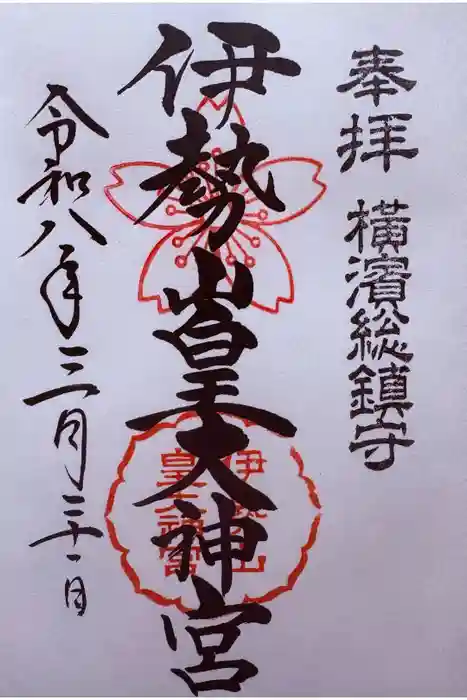 奉拝 横濱総鎮守
伊勢山皇大神宮
伊勢山
皇大神宮
令和八年三月三十一日